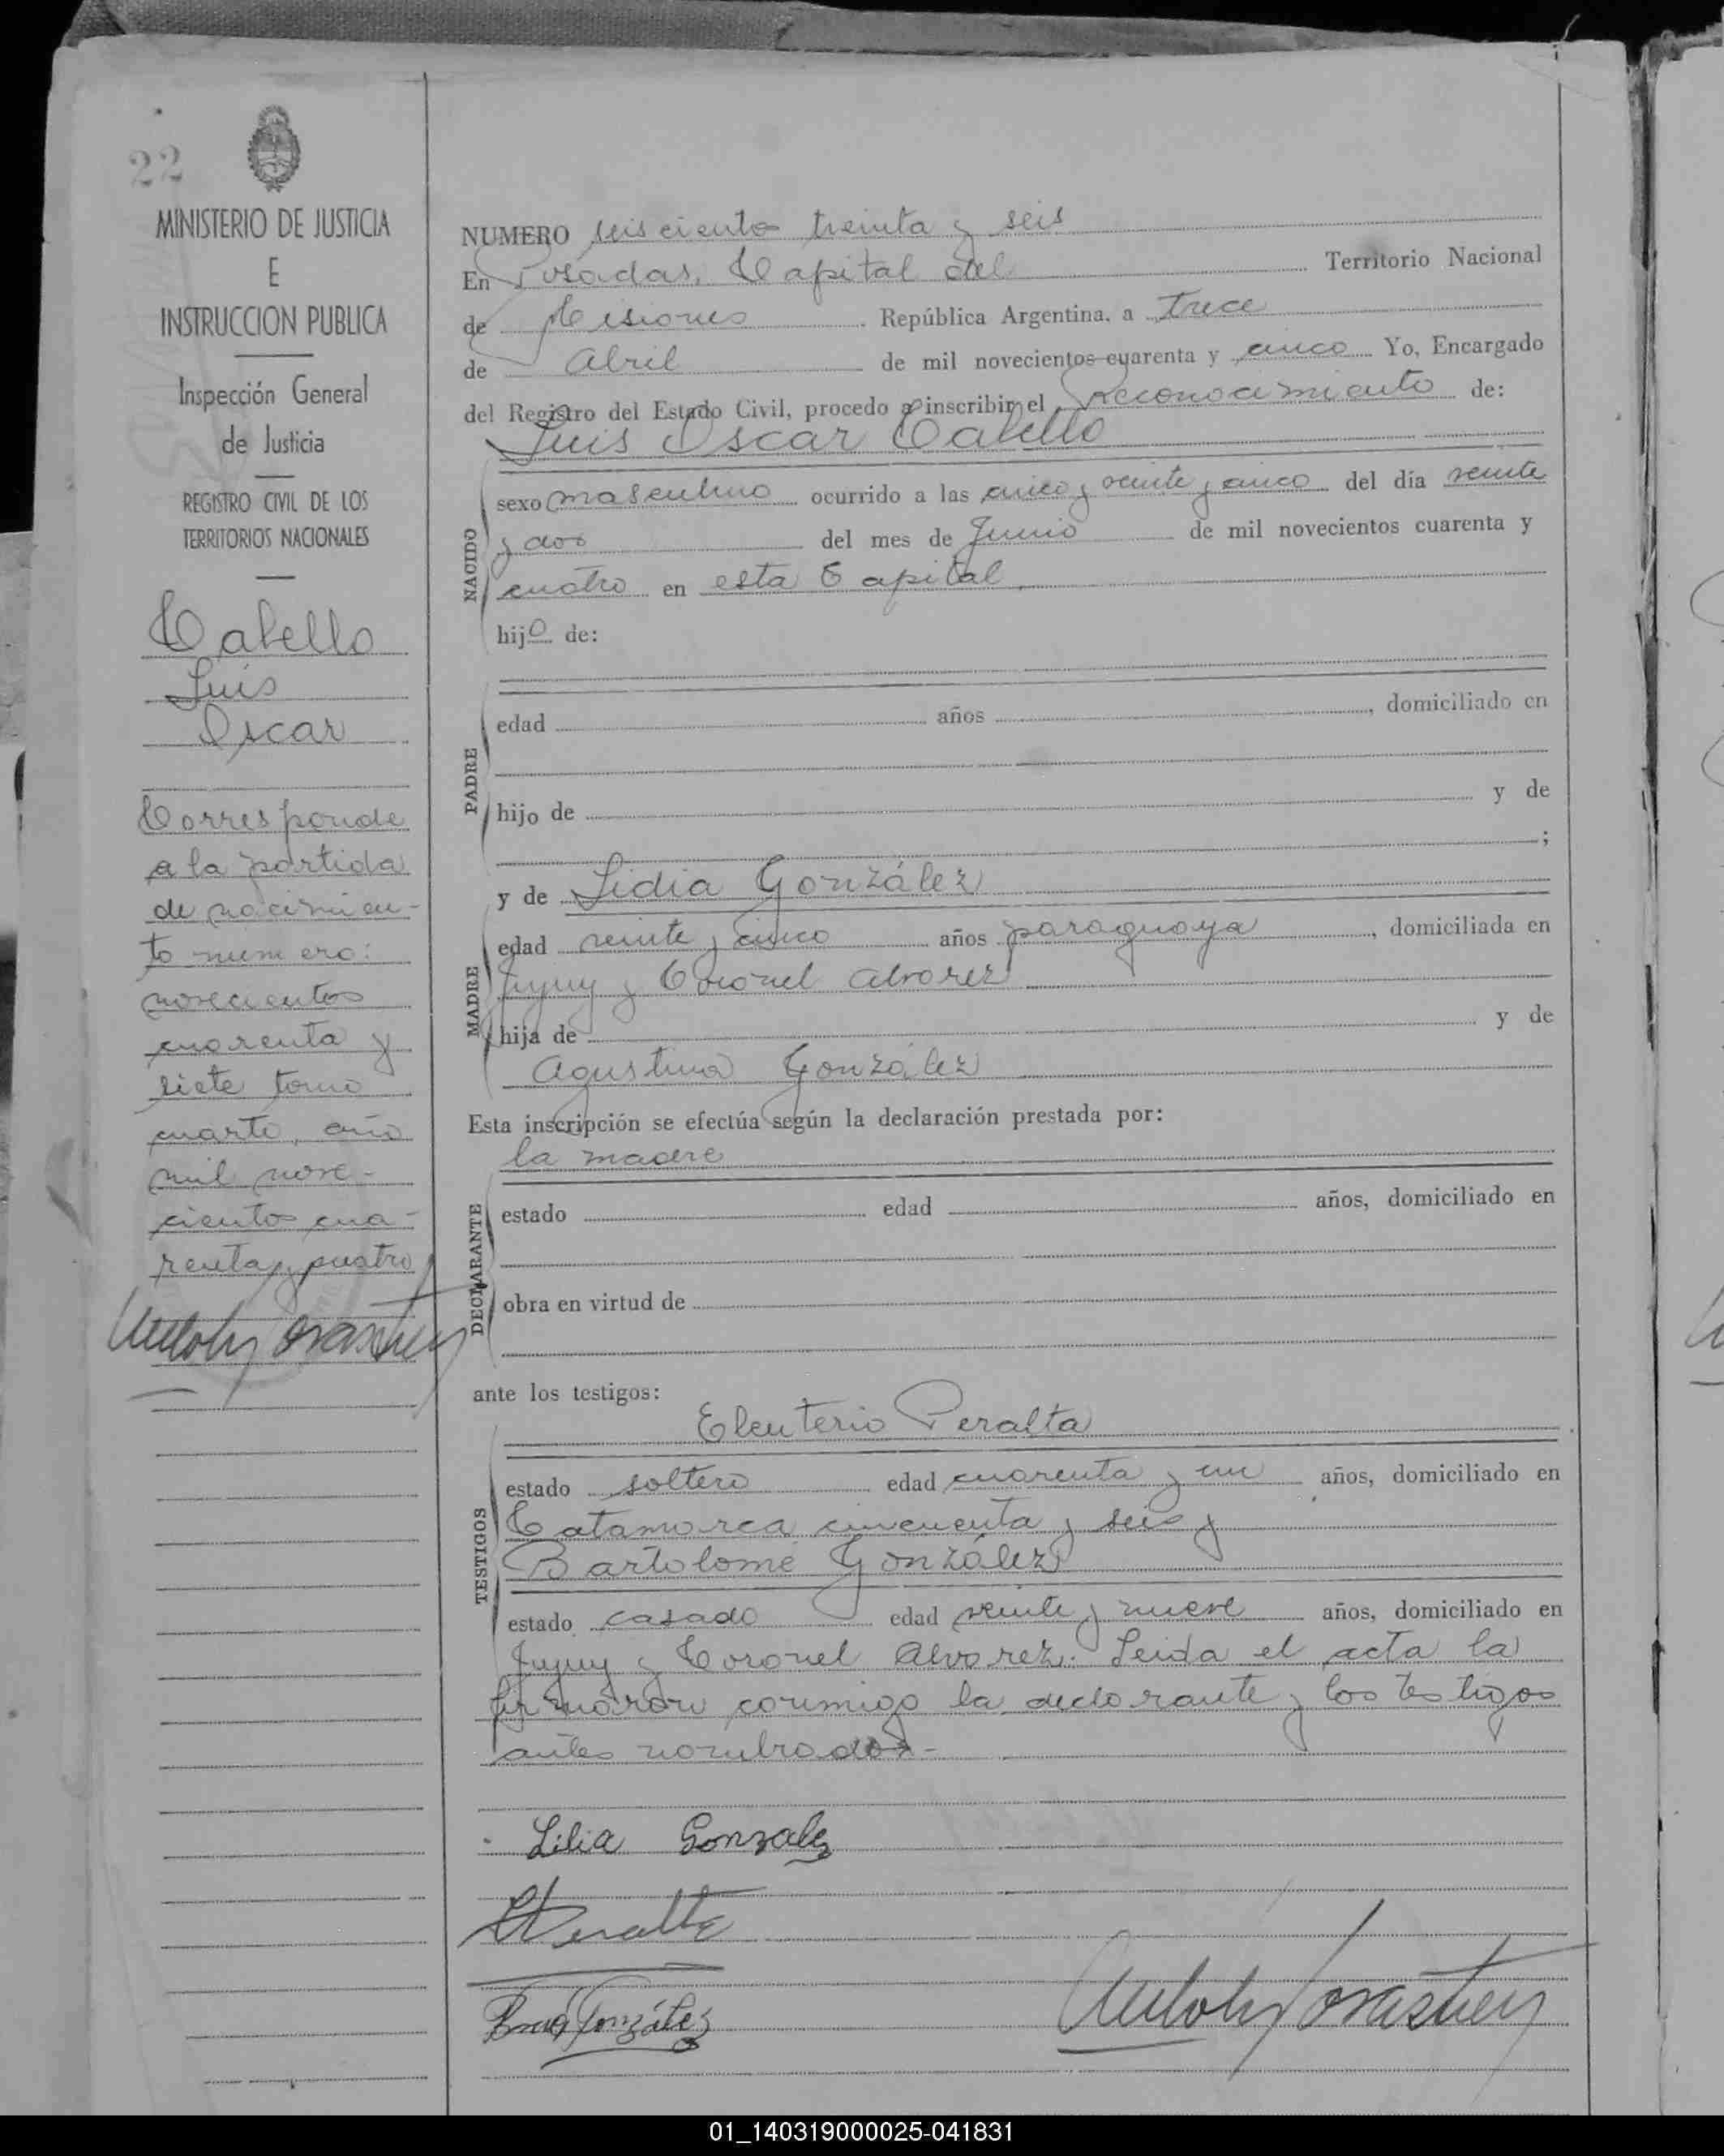 22
MINISTERIO DE JUSTICIA
E
INSTRUCCION PUBLICA
Inspección General
de Justicia
REGISTRO CIVIL DE LOS
TERRITORIOS NACIONALES
Cabello
Luis
Oscar
Corresponde
a la partida
de nacimien-
to numero:
novecientos
cuarenta y
siete tomo
cuarto, año
mil nove-
cientos cua-
renta y cuatro
NUMERO seiscientos treinta y seis
En Posadas, Capital del Territorio Nacional
de Misiones República Argentina, a trece
de Abril de mil novecientos cuarenta y cinco Yo, Encargado
del Registro del Estado Civil, procedo a inscribir el reconocimiento de:
Luis Oscar Cabello
NACIDO
sexo masculino ocurrido a las cinco y veinte y cinco del día veinte
y dos del mes de Junio de mil novecientos cuarenta y
cuatro en esta Capital,
hijo de:
PADRE
edad años , domiciliado en
hijo de y de
;
y de Lidia González
MADRE
edad veinte y cinco años paraguaya , domiciliada en
Jujuy y Coronel Alvarez
hija de y de
Agustina González
Esta inscripción se efectúa según la declaración prestada por:
la madre
DECLARANTE
estado edad años, domiciliado en
obra en virtud de
ante los testigos:
Eleuterio Peralta
TESTIGOS
estado soltero edad cuarenta y un años, domiciliado en
Catamarca cincuenta y seis y
Bartolomé González
estado casado edad veinte y nueve años, domiciliado en
Jujuy y Coronel Alvarez. Leida el acta la
firmaron conmigo la declarante y los testigos
antes nombrados.-
Lilia Gonzalez
Peralta
González
01_140319000025-041831